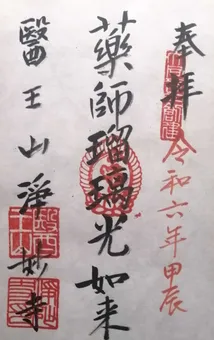 奉拝
令和六年甲辰
薬師瑠璃光如来
醫王山淨妙寺